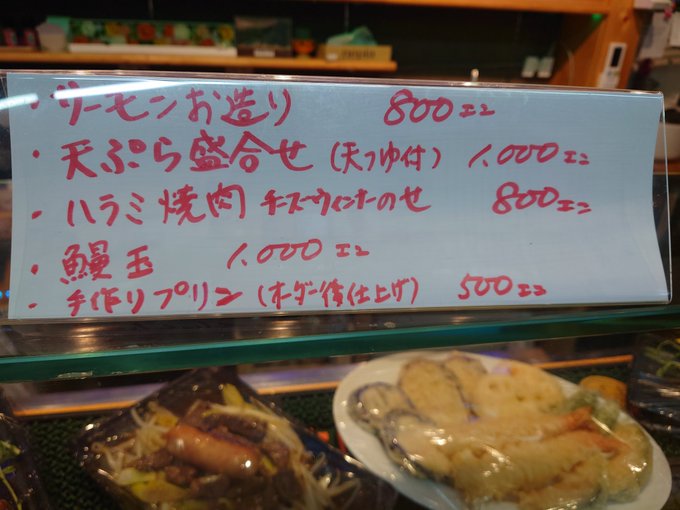 ・サーモンお造り 800エン
・天ぷら盛合せ (天つゆ付) 1,000エン
・ハラミ焼肉 チーズウィンナーのせ 800エン
・鰻玉 1,000エン
・手作りプリン (オーダー後仕上げ) 500エン